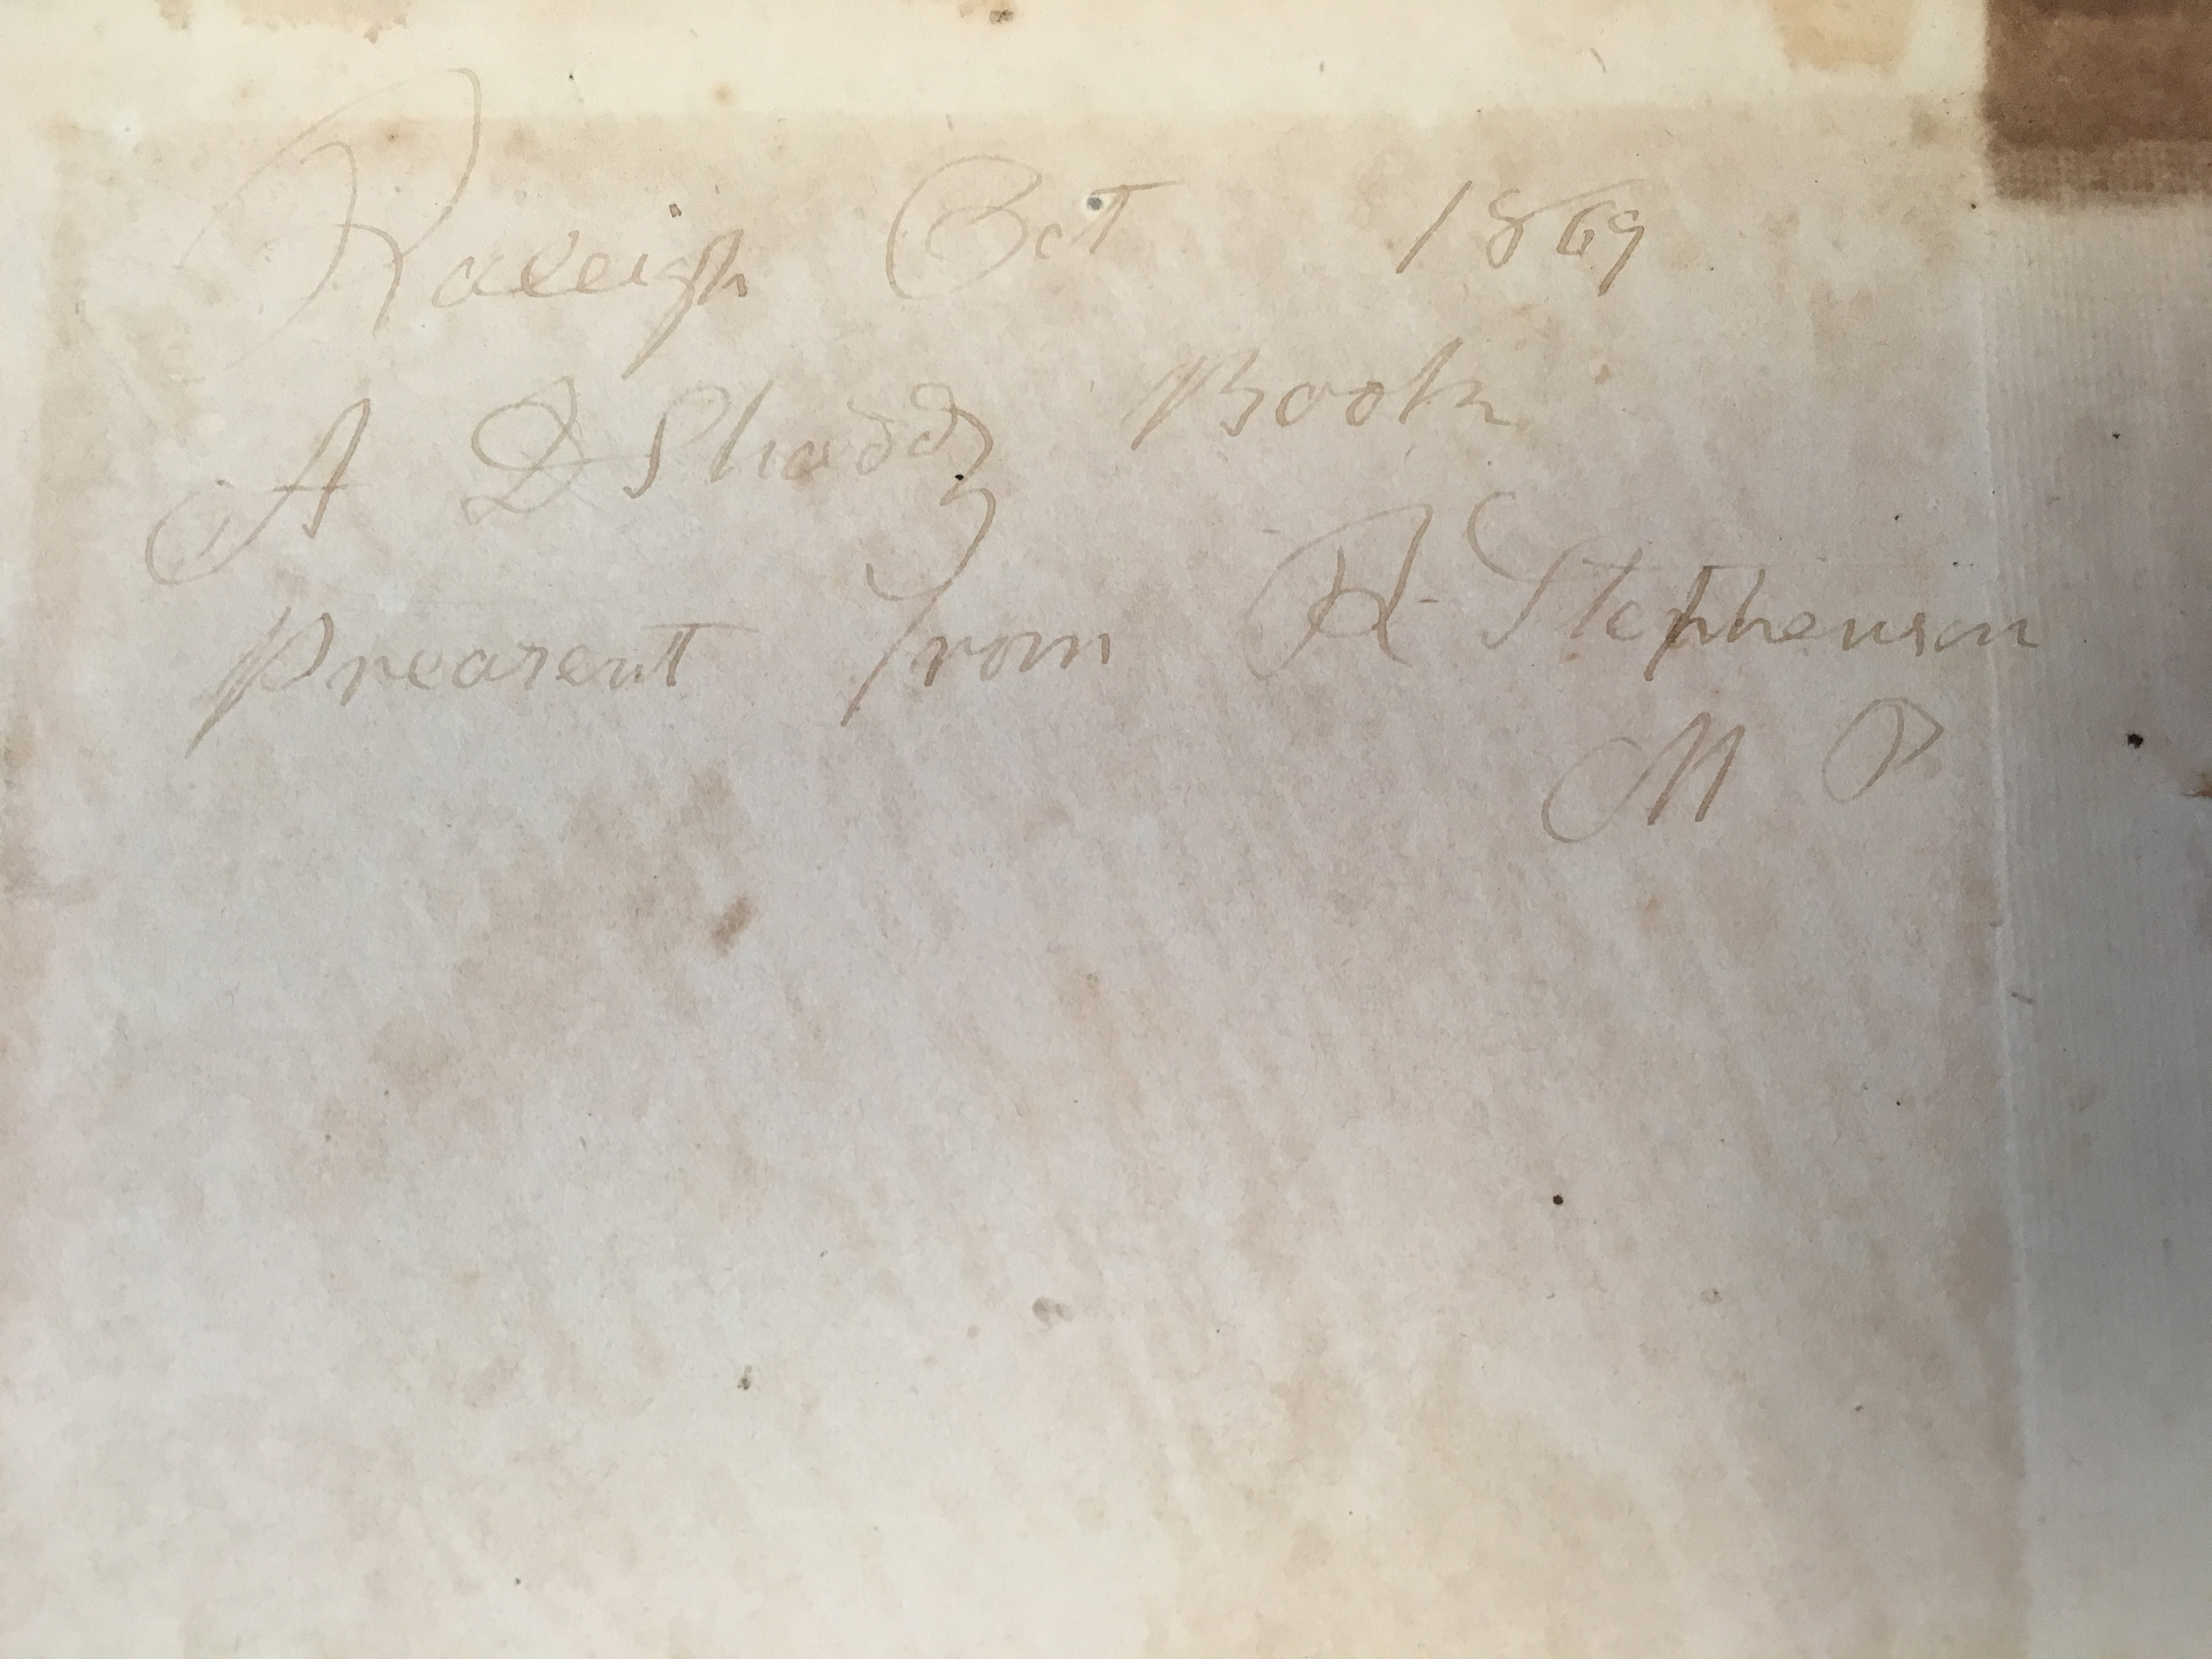 Raleigh Oct 1869
A D Shadd Book
Preasent from R Stephenson
M P